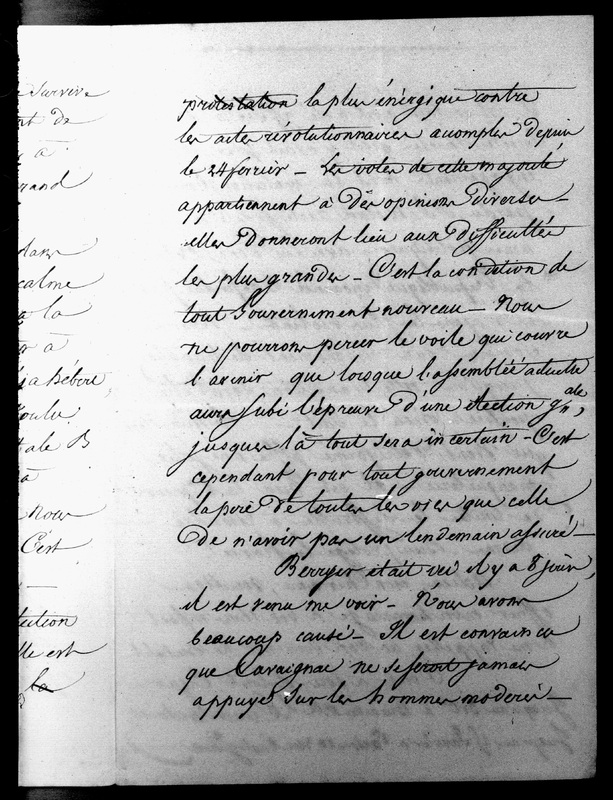 survive
nt de
à
rand
dans
calme
à la
à
à hébert
Voulu
ale B
à
Nous
C'est
lection
lle est
la
protestation la plus énergique contre
les actes révolutionnaires acomples depuis
le 24 fevrier - Les votes de cette majorité
appartiennent à des opinions diverses -
elles donneront lieu aux difficultés
les plus grandes - C'est la condition de
tout Gouvernement nouveau - Nous
ne pourrons percer le voile qui couvre
l'avenir que lorsque l'assemblée actuelle
aura subi l'épreuve d'une élection gnale,
jusques là tout sera incertain - C'est
cependant pour tout gouvernement
la pire de toutes les voies que celle
de n'avoir pas un lendemain assuré -
Berryer était ici il y a 8 jours,
il est venu me voir - Nous avons
beaucoup causé - Il est convaincu
que Cavaignac ne se seroit jamais
appuyé sur les hommes modérés -